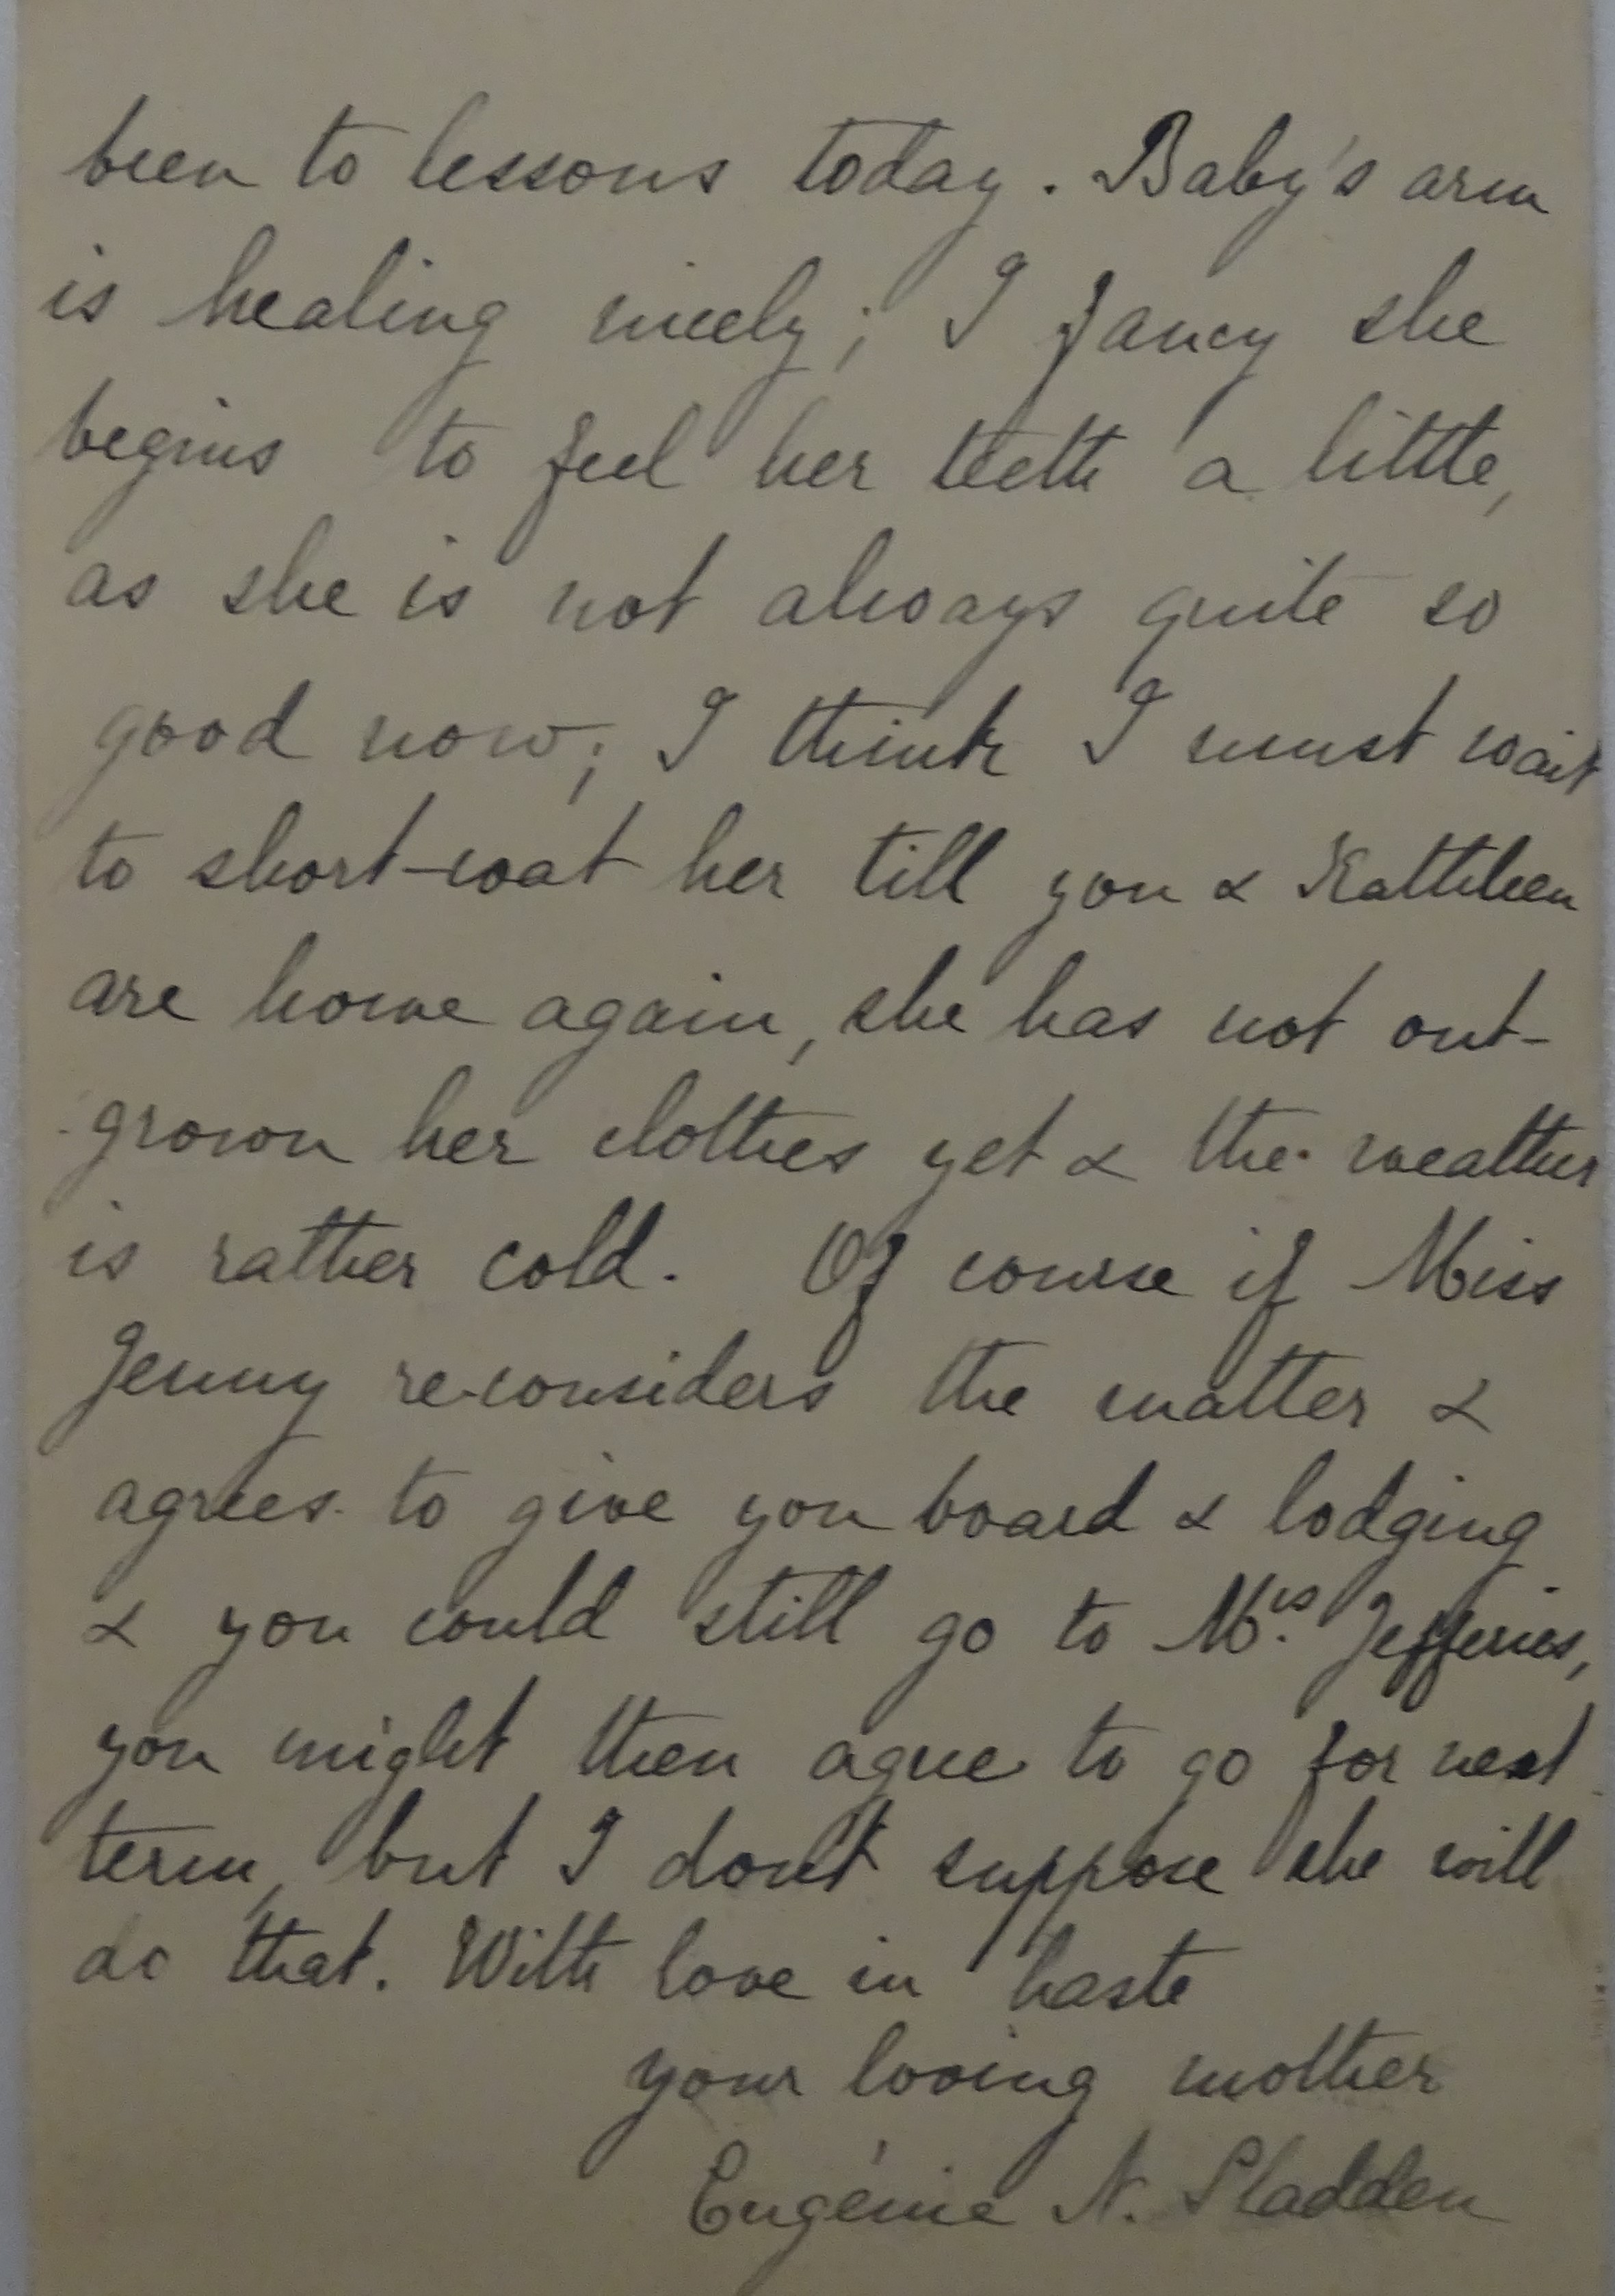 been to lessons today. Baby's arm
is healing nicely; I fancy she
begins to feel her teeth a little,
as she is not always quite so
good now; I think I must wait
to short-coat her till you & Kathleen
are home again, she has not out-
grown her clothes yet & the weather
is rather cold. Of course if Miss
Jenny re-considers the matter &
agrees to give you board & lodging
& you could still go to Mrs. Jefferies,
you might then agree to go for next
term, but I don't suppose she will
do that. With love in haste
your loving mother
Eugénie N. Sladden